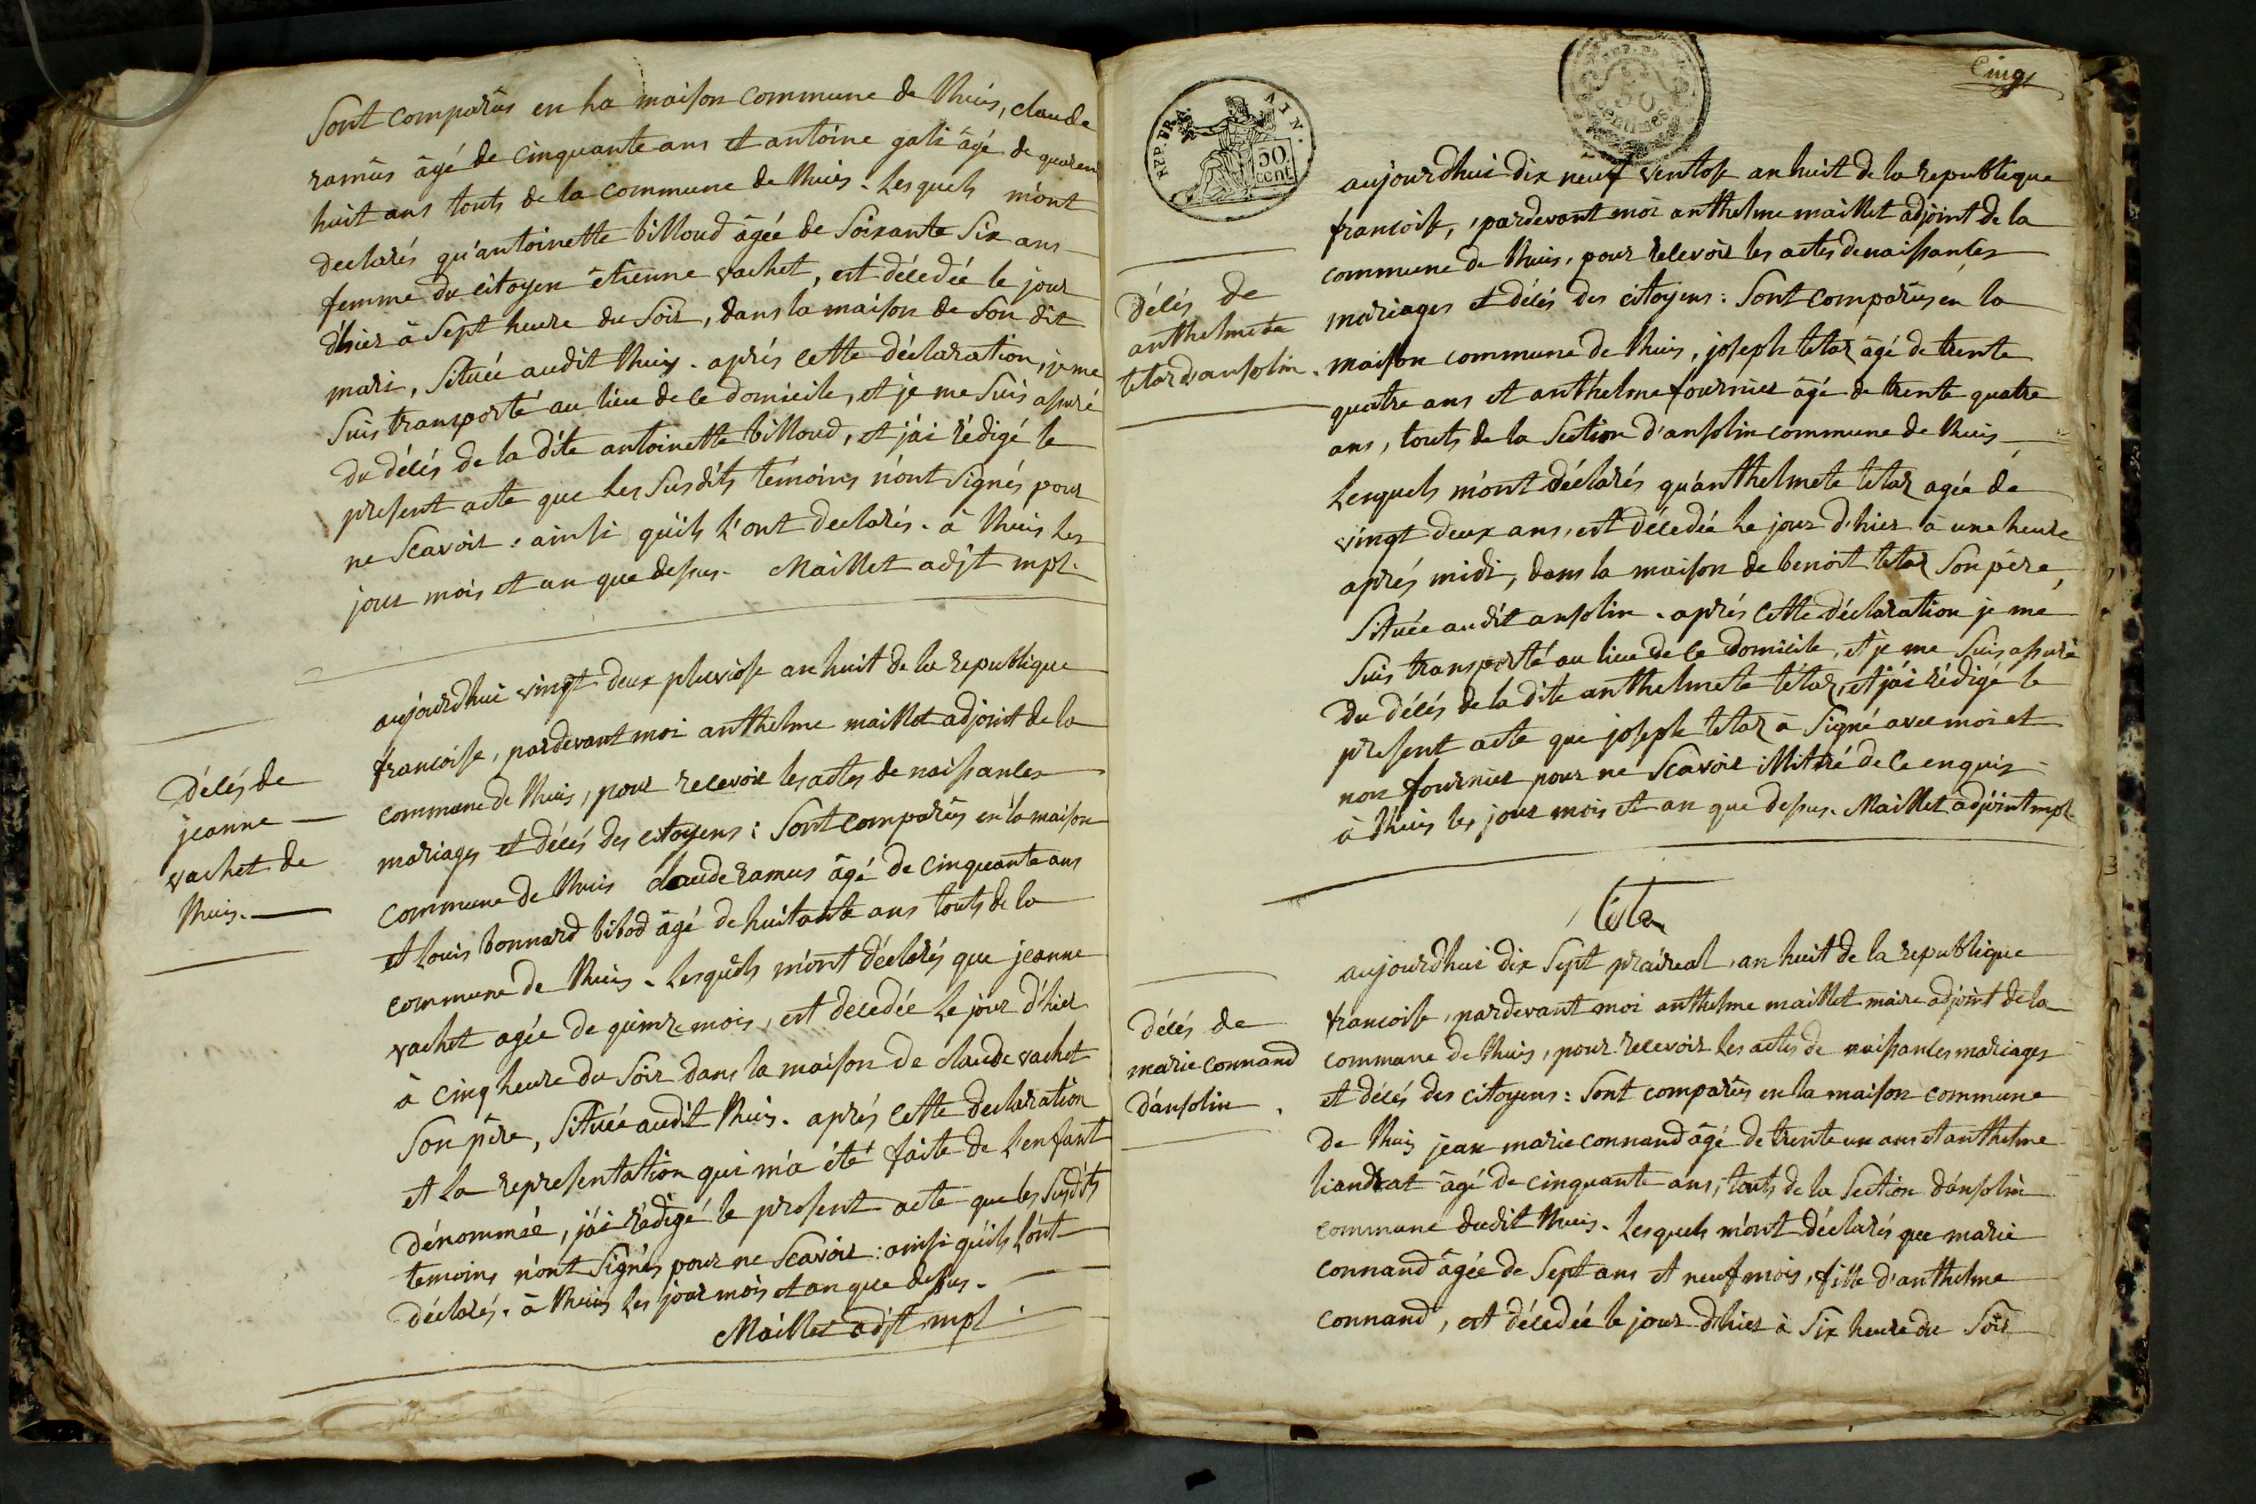 Sont comparûs en la maison commune de thuis, claude
ramûs âgé de cinquante ans et antoine gali âgé de quarente
huit ans touts de la commune de thuis. Lesquels m'ont
declarés qu'antoinette billoud âgée de soixante six ans
femme du citoyen étienne vachet, est décedée le jour
d'hier à sept heure du soir, dans la maison de son dit
mari, située audit thuis. aprés cette déclaration, je me
suis transporté au lieu de ce domicile, et je me suis assuré
du décés de la dite antoinette billoud, et j'ai rédigé le
present acte que les susdits témoins n'ont signés pour
ne scavoir : ainsi qu'ils l'ont declarés. à thuis les
jour mois et an que dessus. Maillet adjt mpl.
aujourdhui vingt deux pluviose an huit de la republique
francoise, pardevant moi anthelme maillet adjoint de la
commune de thuis, pour recevoir les actes de naissances
mariages et décés des citoyens : sont comparûs en la maison
commune de thuis claude ramus âgé de cinquante ans
et louis bonnard bibod âgé de huitante ans touts de la
commune de thuis. Lesquels m'ont déclarés que jeanne
vachet agée de quinze mois, est decedée le jour d'hier
à cinq heure du soir dans la maison de claude vachet
son père, située audit thuis. aprés cette declaration
et la representation qui m'a été faite de l'enfant
dénommée, j'ai rédigé le present acte que les susdits
temoins n'ont signés pour ne scavoir : ainsi qu'ils l'ont
déclarés. à thuis les jour mois et an que dessus.
Maillet adjt mpl.
Décés de
jeanne
vachet de
thuis.
Cinq
REP. FRA
50
cent.
50
centimes
aujourdhui dix neuf ventose an huit de la republique
francoise, pardevant moi anthelme maillet adjoint de la
commune de thuis, pour recevoir les actes de naissances
mariages et décés des citoyens : sont comparûs en la
maison commune de thuis, joseph tetaz âgé de trente
quatre ans et anthelme fournier âgé de trente quatre
ans, touts de la section d'ansolin commune de thuis
Lesquels m'ont déclarés qu'anthelmete tetaz agée de
vingt deux ans, est décedée le jour d'hier à une heure
aprés midi, dans la maison de benoit tetaz son père,
située audit ansolin. aprés cette déclaration je me
suis transporté au lieu de ce domicile, et je me suis assuré
du décés de la dite anthelmete tétaz, et j'ai rédigé le
present acte que joseph tetaz a signé avec moi et
non fournier pour ne scavoir illitré de ce enquis
à thuis les jour mois et an que dessus. Maillet adjoint mpl.
teta
Décés de
anthelmete
tetaz d'ansolin.
aujourdhui dix sept praireal, an huit de la republique
francoise, pardevant moi anthelme maillet maire adjoint de la
commune de thuis, pour recevoir les actes de naissances mariages
et décés des citoyens : sont comparûs en la maison commune
de thuis jean marie connand âgé de trente un ans et anthelme
liandrat âgé de cinquante ans, touts de la section d'ansolin
commune dudit thuis. Lesquels m'ont déclarés que marie
connand âgée de sept ans et neuf mois, fille d'anthelme
connand, est décedée le jour d'hier à six heure du soir
décés de
marie connand
d'ansolin.